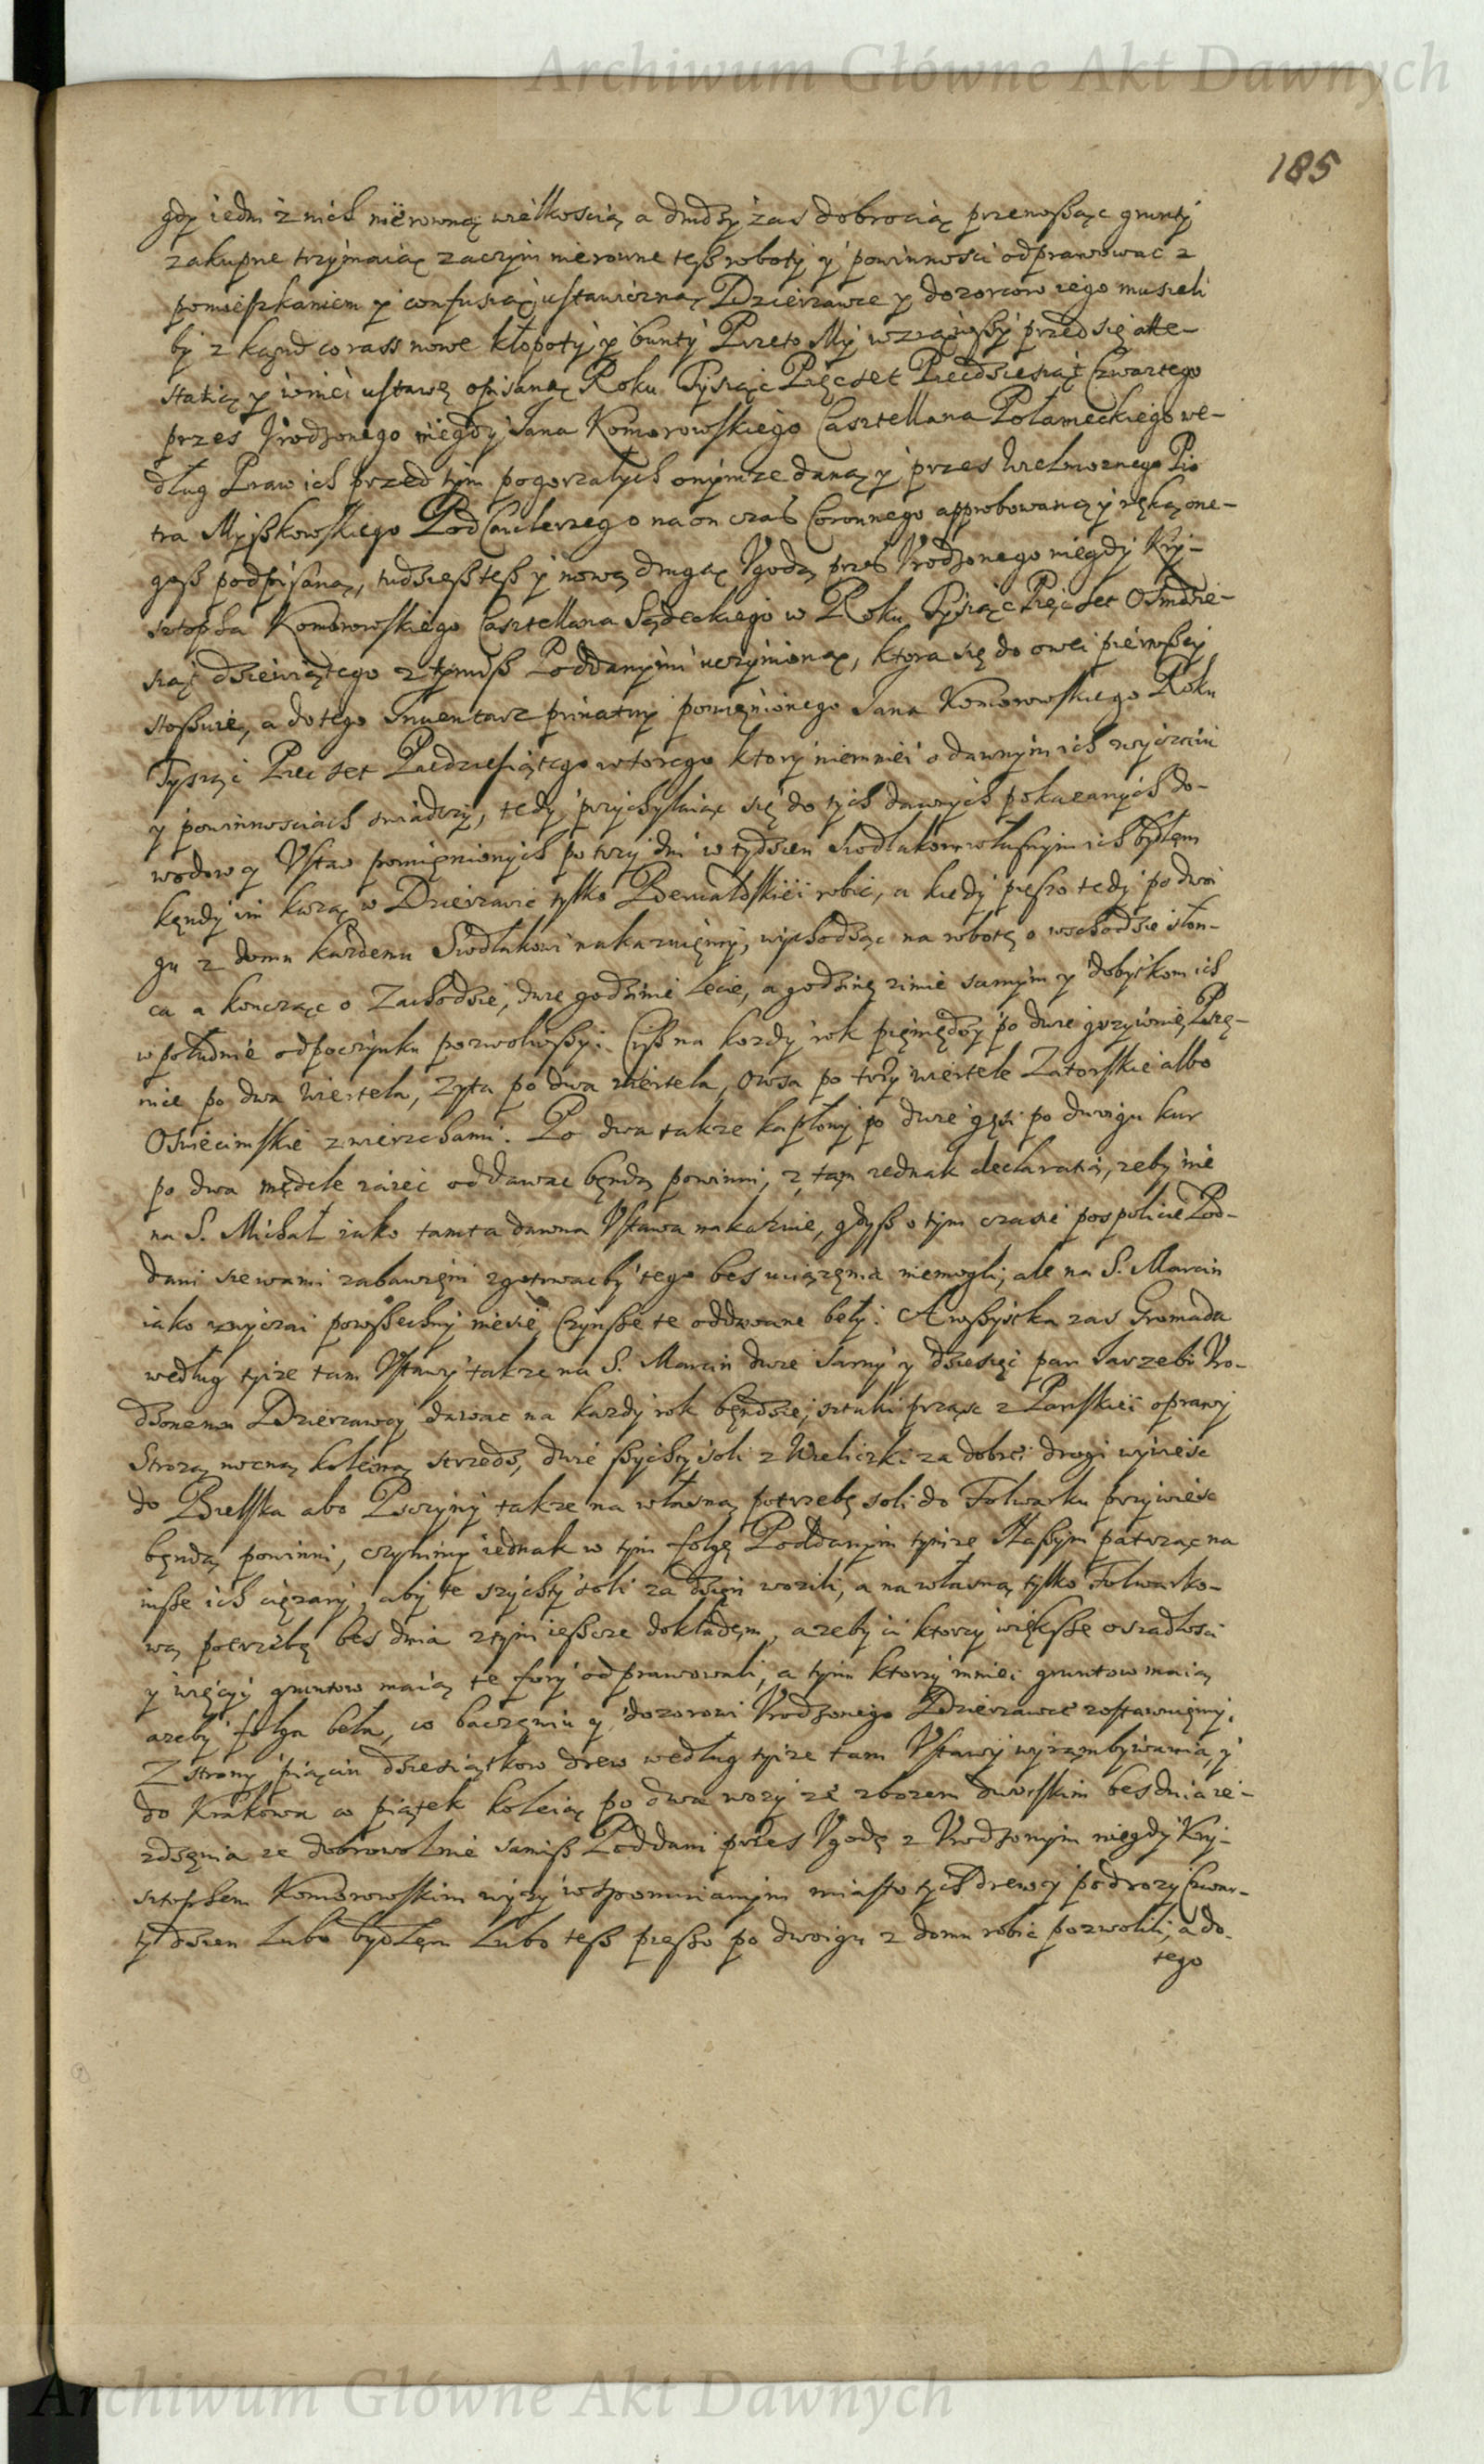 Archiwum Główne Akt Dawnych
185
gdy iedni z nich nierowną wielkoscią a drudzy zas dobrocią przenoszące grunty
zakupne trzymaiąc zaczym nierowne tesz roboty y powinnosci odprawowac z
pomieszkaniem y confusią ustawiczną Dzierzawce y dozorcow iego musieli
by z kąnd corass nowe kłopoty y bunty Przeto My wziąwszy przed się atte-
statią y w niei ustawę opisaną Roku Tysiąc Pięcset Piecdziesiąt Czwartego
przes Urodzonego niegdy Jana Komorowskiego Casztellana Połanieckiego we-
dług Praw ich przed tym pogorzałych onymze daną y przes Wielmoznego Pio
tra Myszkowskiego PodCanclerzego na on czas Coronnego approbowaną y ręką one-
gosz podpisaną, tudziesz tesz y nową drugą Ugodę przes Urodzonego niegdy Kry-
sztopha Komorowskiego Casztellana Sądeckiego w Roku Tysiąc Pięcset Osmdzie-
siąt dziewiątego z tymisz Poddanymi uczynioną, ktora się do owei pierwszej
stossuie, a do tego Inwentarz prinatny pomienionego Jana Komorowskiego Roku
Tysiąc Piecset Piedziesiątego wtorego ktory niemniei o dawnym ich zwyczaiu
y powinnosciach swiadczy, tedy przychylaiąc się do tych dawnych pokazanych do-
wodow y Ustaw pomienionych po trzy dni w tydzien Siodlakom własnym ich bydłem
kęndy im kazą w Dzierzawie tylko Berwałdskiei robic, a kiedy pieszo tedy po dwoi
gu z domu kazdemu Siodlakowi nakazuięmy, wychodząc na robotę o wschodzie słon-
ca a koncząc o Zachodzie, dwie godzinie lecie, a godzinę zimie samym y dobytkom ich
w południe odpoczynku pozwoliwszy. Cisz na kozdy rok pięniędzy po dwie grzywnie, Pszę-
nice po dwa Wiertela, Zyta po dwa wiertela, Owsa po trzy wiertele Zatorskie albo
Oswiecimskie z wierzchami. Po dwa takze kapłony po dwie gęsi po dwoigu kur
po dwa męndele iaiec oddawac będą powinni, z tąn iednak declaratią, zeby nie
na S. Michał iako tamta dawna Ustawa nakazuie, gdysz o tym czasie pospolicie Pod-
dani siewami zabawięni zgotowacby tego bes uciązęnia niemogli, ale na S. Marcin
iako zwyczai powszechny niesie Czynsze te oddawane beły. A wszystka zas Gromada
według tyize tam Ustawy takze na S. Marcin dwie Sarny y dziesięć par Jarzebi Uro-
dzonemu Dzierzawcy dawac na kazdy rok będzie, sztuki przasc z Panskiei oprawy
Strozą nocną koleiną strzedz, dwie szychty soli z Wieliczki za dobrei drogi wywiesc
do Bielska abo Psczyny takze na własną potrzebę soli do Folwarku przywiesc
będą powinni, czynimy iednak w tym folgę Poddanym tymze Naszym patrząc na
insze ich ciężary, aby te szychty soli za dzien wozili, a na własną tylko Folwarko-
wą potrzebę bes dnia z tym ieszcze dokładęm, azeby ci ktorzy większe osiadłosci
y więcyi gruntow maią te fory odprawowali, a tym ktorzy mniei gruntow maią
azeby folga beła, co baczęniu y dozorowi Urodzonego Dzierzawce zostawuięmy.
Z strony piąciu dziesiątkow drew według tyize tam Ustawy wyrąmbywania, y
do Krakowa w piątek koleią po dwa wozy ze zbozem dworskim bes dnia ie-
zdzęnia ze dobrowolnie samisz Poddani przes Ugodę z Urodzonym niegdy Kry-
sztophem Komorowskim wyzy wspomnianym miasto tych drew y podrozy Czwar-
ty dzien Lubo bydłęm Lubo tesz pieszo po dwoigu z domu robic pozwolili, a do-
tego
Archiwum Główne Akt Dawnych